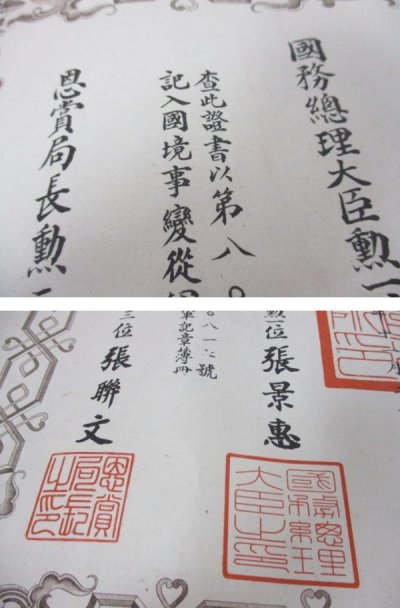 國務總理大臣勲一
查此證書以第八〇
記入國境事變從軍
恩賞局長勲三
勲一位張景惠
〇八一六號
軍記章簿冊
三位張聯文
國務總理大臣之印
恩賞局長之印